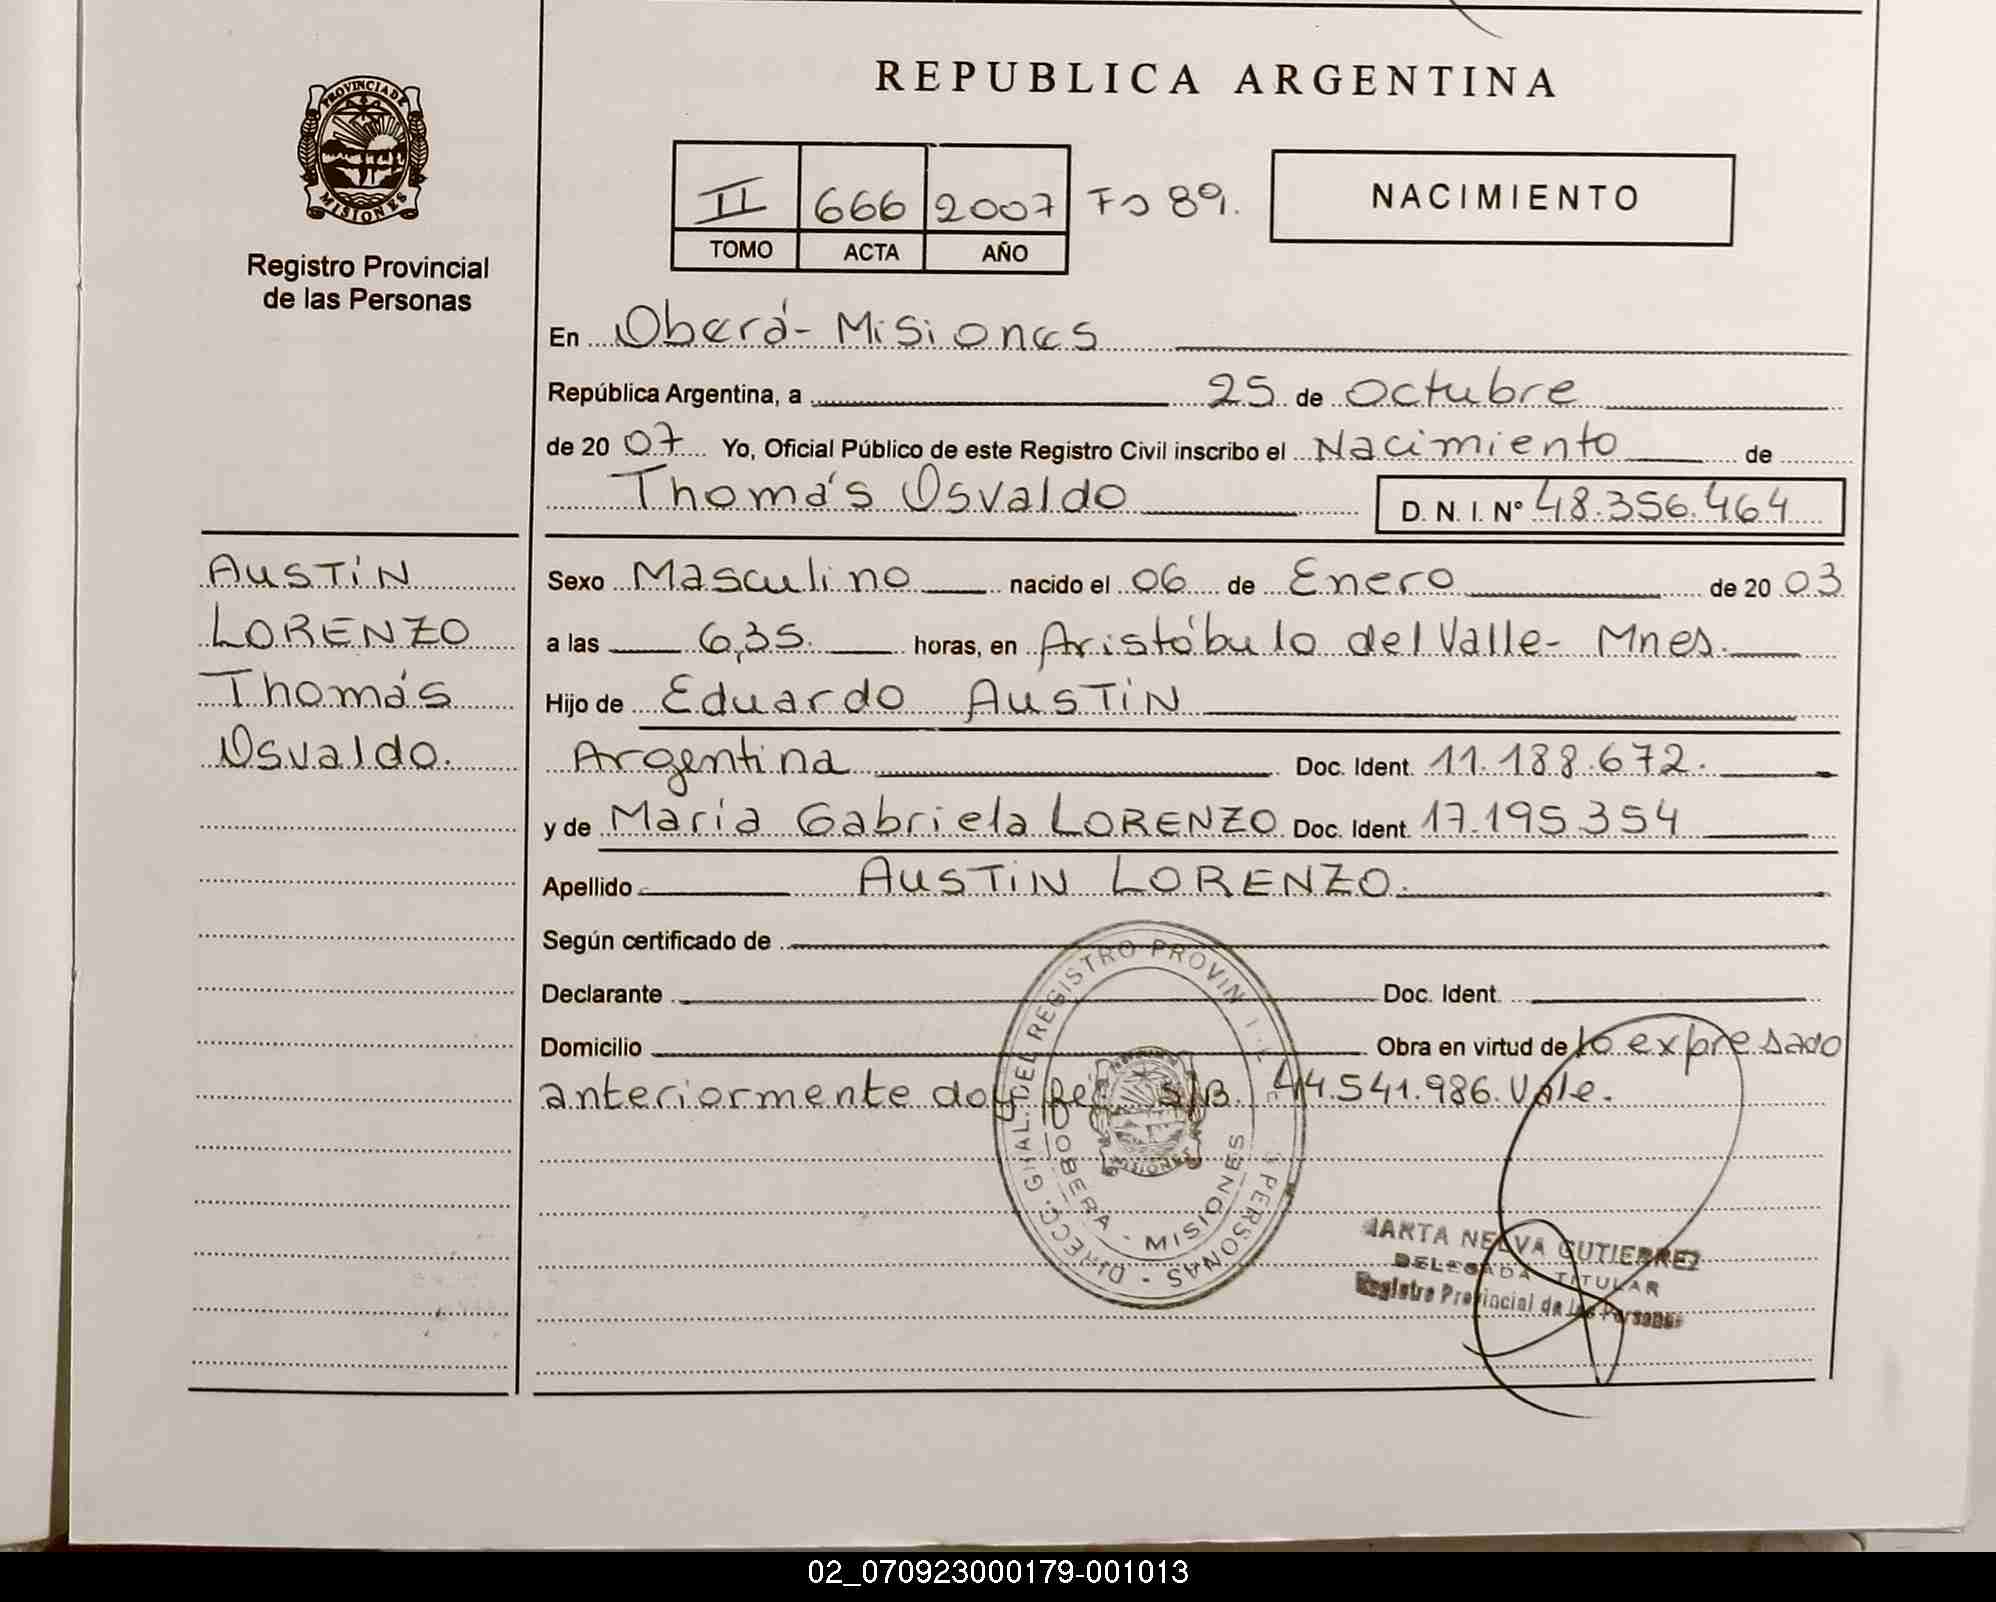 REPUBLICA ARGENTINA
PROVINCIA DE MISIONES
Registro Provincial
de las Personas
II 666 2007 Fo 89.
TOMO ACTA AÑO
NACIMIENTO
En Oberá - Misiones
República Argentina, a 25 de Octubre
de 20 07 Yo, Oficial Público de este Registro Civil inscribo el Nacimiento de
Thomás Osvaldo D. N. I. Nº 48.356.464
AUSTIN
LORENZO
Thomás
Osvaldo.
Sexo Masculino nacido el 06 de Enero de 20 03
a las 6,35. horas, en Aristóbulo del Valle - Mnes.
Hijo de Eduardo AUSTIN
Argentina Doc. Ident. 11.188.672.
y de María Gabriela LORENZO Doc. Ident. 17.195.354
Apellido AUSTIN LORENZO.
Según certificado de
Declarante Doc. Ident.
Domicilio Obra en virtud de lo expresado
anteriormente doy fe. S/B. 44.541.986. Vale.
DIRECC. GRAL. DEL REGISTRO PERSONAS
OBERA - MISIONES
MISIONES
MARTA NELVA GUTIERREZ
DELEGADA TITULAR
Registro Provincial de las Personas
02_070923000179-001013